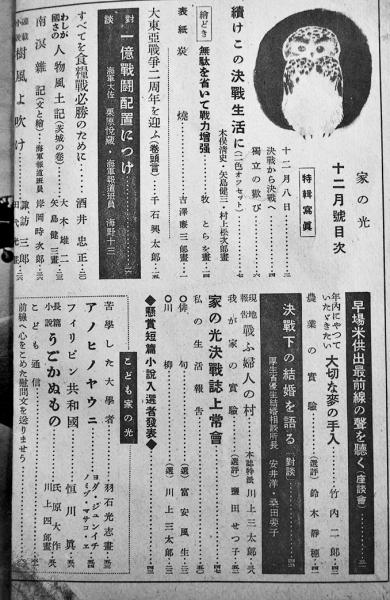 家の光
十二月號目次
特輯寫眞
十二月八日
決戰から決戰へ
獨立の歡び
續けこの決戰生活に(二色オフセツト)
木俣清史・矢島健三・村上松次郎畫
繪どき 無駄を省いて戰力增强 牧とらを畫
表紙 炭燒 吉澤廉三郎畫
大東亞戰爭二周年を迎ふ(卷頭言) 千石興太郎
對談 一億戰鬪配置につけ 海軍大佐 栗原悅藏・海軍報道班員 海野十三
すべてを食糧戰必勝のために 酒井忠正
わしが國さの 人物風土記(茨城の卷) 大木雄二 矢島健三畫
南溟雜記(文と繪) 海軍報道班員 岸岡時次郎
小說 樹風よ吹け 諏訪三郎
早場米供出最前線の聲を聽く(座談會)
年内にやつていたゞきたい 大切な麥の手入 竹内二郎
農業の實驗 (選評) 鈴木靜穗
決戰下の結婚を語る(對談) 厚生省優生結婚相談所長 安井洋・桑田要子
現地報告 戰ふ婦人の村 本誌特派 川上三太郎
我が家の實驗 (選評) 鹽田せつ子
家の光決戰誌上常會
私の生活報告
◇俳句 (選) 富安風生
◇川柳 (選) 川上三太郎
◆懸賞短篇小說入選者發表◆
こども家の光
苦學した大學者 羽石光志畫
アノヒノヤウニ ヨダ・ジュンイチ ノミヅ・マサコ・ヱ
フィリピン共和國 恒川眞
長篇小說 うごかぬもの 氏原大作作 川上四郎畫
こども通信
前線へ心をこめた慰問文を送りませう